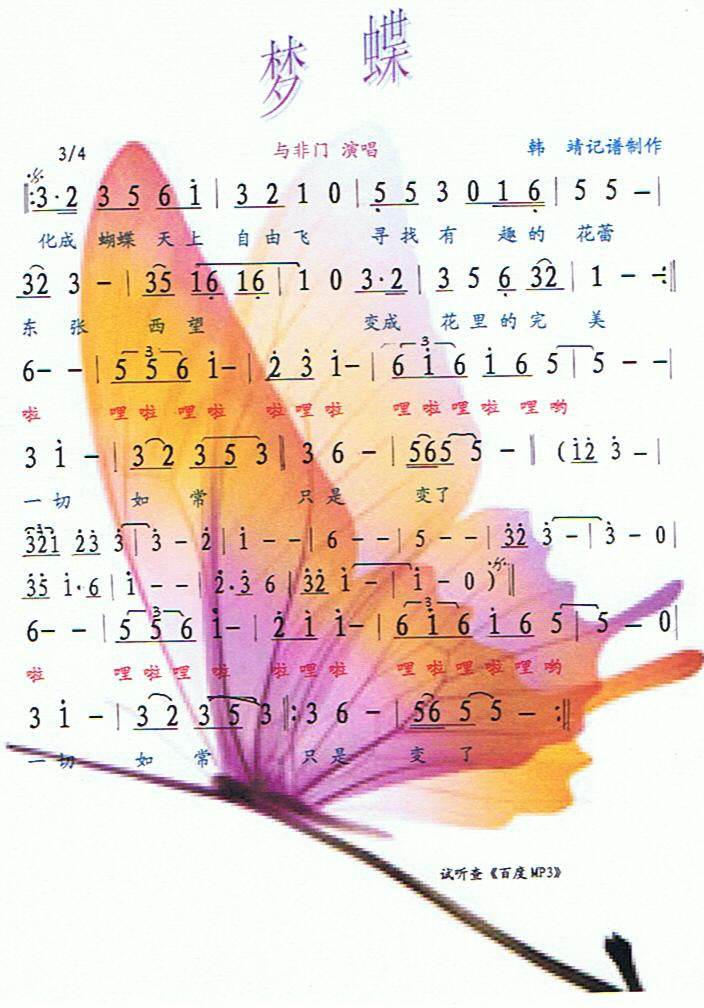 梦 蝶
3/4 与非门 演唱 韩 靖记谱制作
‖:3·2 3 5 6 i̇ | 3 2 1 0 | 5̣ 5 3 0 1 6̣ | 5 5 – |
化成 蝴蝶 天上 自由飞 寻找有 趣的 花蕾
32 3 – | 35 16̣ 16̣ | 1 0 3·2 | 3 5 6̣ 32 | 1 – – :‖
东 张 西 望 变成 花里的完 美
6– – | 5 5 6 i̇– | 2̇ 3̇ i̇– | 6 i̇ 6 i̇ 6 5 | 5 – – |
啦 哩啦哩啦 啦哩啦 哩啦哩啦 哩哟
3 i̇ – | 3 2 3 5 3 ‖ 3 6 – | 565 5 – ‖ (i̇2̇ 3̇ – |
一切 如 常 只是 变了
3̇2̇1̇ 2̇3̇ 3̇ | 3̇ – 2̇ | i̇ – – | 6 – – | 5 – – | 3̇2̇ 3̇ – | 3̇ – 0 |
3̇5̇ i̇·6 | i̇ – – | 2̇·3̇ 6 | 3̇2̇ i̇ – | i̇ – 0 ) ‖
6– – | 5 5 6 i̇– | 2̇ i̇ i̇– | 6 i̇ 6 i̇ 6 5 | 5 – 0 |
啦 哩啦哩 啦 啦哩啦 哩啦哩啦哩哟
3 i̇ – | 3 2 3 5 3 ‖:3 6 – | 56 5 5 – :‖
一切 如 常 只是 变 了
试听查《百度MP3》